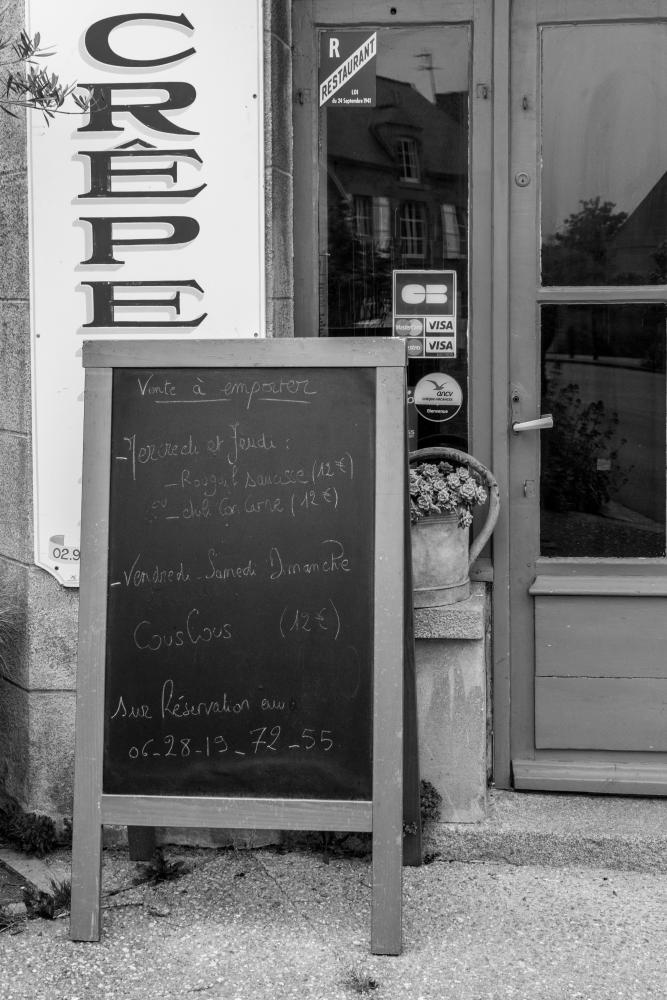 CRÊPE
R
RESTAURANT
LOI
du 24 Septembre 1941
CB
MasterCard VISA
VISA
ancv
Bienvenue
02.9
Vente à emporter
- Mercredi et Jeudi :
- Rougail saucisse (12 €)
- chili Con Carne (12 €)
- Vendredi Samedi Dimanche
CousCous (12 €)
Sur Réservation au :
06-28-19-72-55